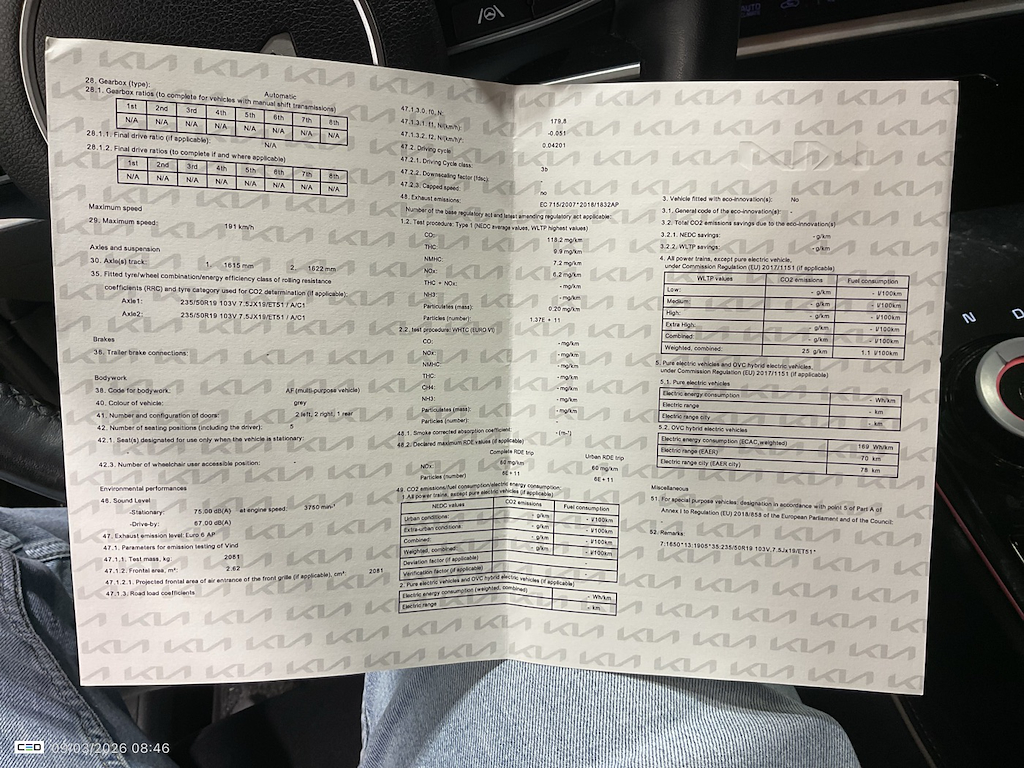 28. Gearbox (type): Automatic
28.1. Gearbox ratios (to complete for vehicles with manual shift transmissions)
1st 2nd 3rd 4th 5th 6th 7th 8th
N/A N/A N/A N/A N/A N/A N/A N/A
28.1.1. Final drive ratio (if applicable): N/A
28.1.2. Final drive ratios (to complete if and where applicable)
1st 2nd 3rd 4th 5th 6th 7th 8th
N/A N/A N/A N/A N/A N/A N/A N/A
Maximum speed
29. Maximum speed: 191 km/h
Axles and suspension
30. Axle(s) track: 1. 1615 mm 2. 1622 mm
35. Fitted tyre/wheel combination/energy efficiency class of rolling resistance
coefficients (RRC) and tyre category used for CO2 determination (if applicable):
Axle1: 235/50R19 103V 7.5JX19/ET51 / A/C1
Axle2: 235/50R19 103V 7.5JX19/ET51 / A/C1
Brakes
36. Trailer brake connections: -
Bodywork
38. Code for bodywork: AF (multi-purpose vehicle)
40. Colour of vehicle: grey
41. Number and configuration of doors: 2 left, 2 right, 1 rear
42. Number of seating positions (including the driver): 5
42.1. Seat(s) designated for use only when the vehicle is stationary: -
42.3. Number of wheelchair user accessible position: -
Environmental performances
46. Sound Level
-Stationary: 75.00 dB(A) at engine speed: 3750 min-¹
-Drive-by: 67.00 dB(A)
47. Exhaust emission level: Euro 6 AP
47.1. Parameters for emission testing of Vind
47.1.1. Test mass, kg: 2081
47.1.2. Frontal area, m²: 2.62
47.1.2.1. Projected frontal area of air entrance of the front grille (if applicable), cm²: 2081
47.1.3. Road load coefficients
47.1.3.0. f0, N: 179.8
47.1.3.1. f1, N/(km/h): -0.051
47.1.3.2. f2, N/(km/h)²: 0.04201
47.2. Driving cycle
47.2.1. Driving Cycle class: 3b
47.2.2. Downscaling factor (fdsc): -
47.2.3. Capped speed: no
48. Exhaust emissions: EC 715/2007*2018/1832AP
Number of the base regulatory act and latest amending regulatory act applicable:
1.2. Test procedure: Type 1 (NEDC average values, WLTP highest values)
CO: 118.2 mg/km
THC: 9.9 mg/km
NMHC: 7.2 mg/km
NOx: 6.2 mg/km
THC + NOx: - mg/km
NH3: - mg/km
Particulates (mass): 0.20 mg/km
Particles (number): 1.37E + 11
2.2. test procedure: WHTC (EURO VI)
CO: - mg/km
NOx: - mg/km
NMHC: - mg/km
THC: - mg/km
CH4: - mg/km
NH3: - mg/km
Particulates (mass): - mg/km
Particles (number): -
48.1. Smoke corrected absorption coefficient: - (m-¹)
48.2. Declared maximum RDE values (if applicable)
Complete RDE trip Urban RDE trip
NOx: 60 mg/km 60 mg/km
Particles (number) 6E + 11 6E + 11
49. CO2 emissions/fuel consumption/electric energy consumption:
1. All power trains, except pure electric vehicles (if applicable)
NEDC values CO2 emissions Fuel consumption
Urban conditions: - g/km - l/100km
Extra-urban conditions: - g/km - l/100km
Combined: - g/km - l/100km
Weighted, combined: - g/km - l/100km
Deviation factor (if applicable) -
Verification factor (if applicable) -
2. Pure electric vehicles and OVC hybrid electric vehicles (if applicable)
Electric energy consumption (weighted, combined) - Wh/km
Electric range - km
3. Vehicle fitted with eco-innovation(s): No
3.1. General code of the eco-innovation(s): -
3.2. Total CO2 emissions savings due to the eco-innovation(s)
3.2.1. NEDC savings: - g/km
3.2.2. WLTP savings: - g/km
4. All power trains, except pure electric vehicle,
under Commission Regulation (EU) 2017/1151 (if applicable)
WLTP values CO2 emissions Fuel consumption
Low: - g/km - l/100km
Medium: - g/km - l/100km
High: - g/km - l/100km
Extra High: - g/km - l/100km
Combined: - g/km - l/100km
Weighted, combined: 25 g/km 1.1 l/100km
5. Pure electric vehicles and OVC hybrid electric vehicles,
under Commission Regulation (EU) 2017/1151 (if applicable)
5.1. Pure electric vehicles
Electric energy consumption - Wh/km
Electric range - km
Electric range city - km
5.2. OVC hybrid electric vehicles
Electric energy consumption (ECAC,weighted) 169 Wh/km
Electric range (EAER) 70 km
Electric range city (EAER city) 78 km
Miscellaneous
51. For special purpose vehicles: designation in accordance with point 5 of Part A of
Annex I to Regulation (EU) 2018/858 of the European Parliament and of the Council:
-
52. Remarks:
7:1650*13:1905*35:235/50R19 103V 7.5Jx19/ET51*
N D
AUTO
CEO 09/03/2026 08:46